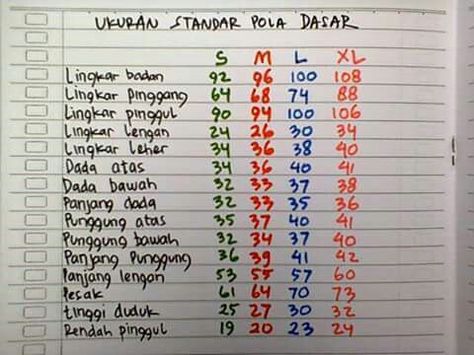 UKURAN STANDAR POLA DASAR
S M L XL
Lingkar badan 92 96 100 108
Lingkar pinggang 64 68 74 88
Lingkar pinggul 90 94 100 106
Lingkar lengan 24 26 30 34
Lingkar leher 34 36 38 40
Dada atas 34 36 40 41
Dada bawah 32 33 37 38
Panjang dada 32 33 35 36
Punggung atas 35 37 40 41
Punggung bawah 32 34 37 40
Panjang Punggung 36 39 41 42
Panjang lengan 53 55 57 60
Pesak 61 64 70 73
tinggi duduk 25 27 30 32
Rendah pinggul 19 20 23 24